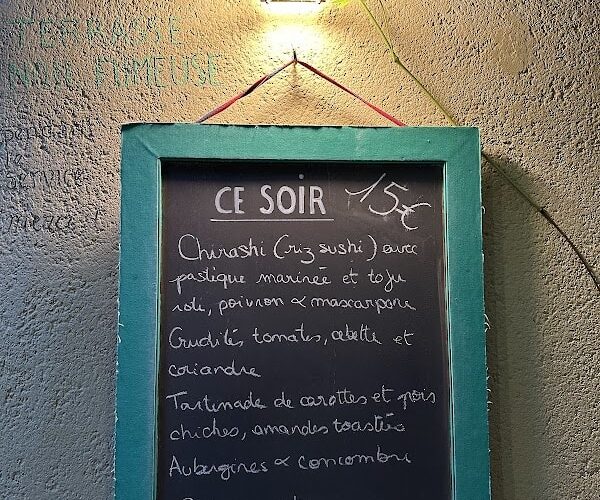 TERRASSE
NON FUMEUSE
pendant
le
service
merci !
CE SOIR 15€
Chirashi (riz sushi) avec
pastèque marinée et tofu
roti, poivron & mascarpone
Crudités tomates, cebette et
coriandre
Tartinade de carottes et pois
chiches, amandes toastées
Aubergines & concombre